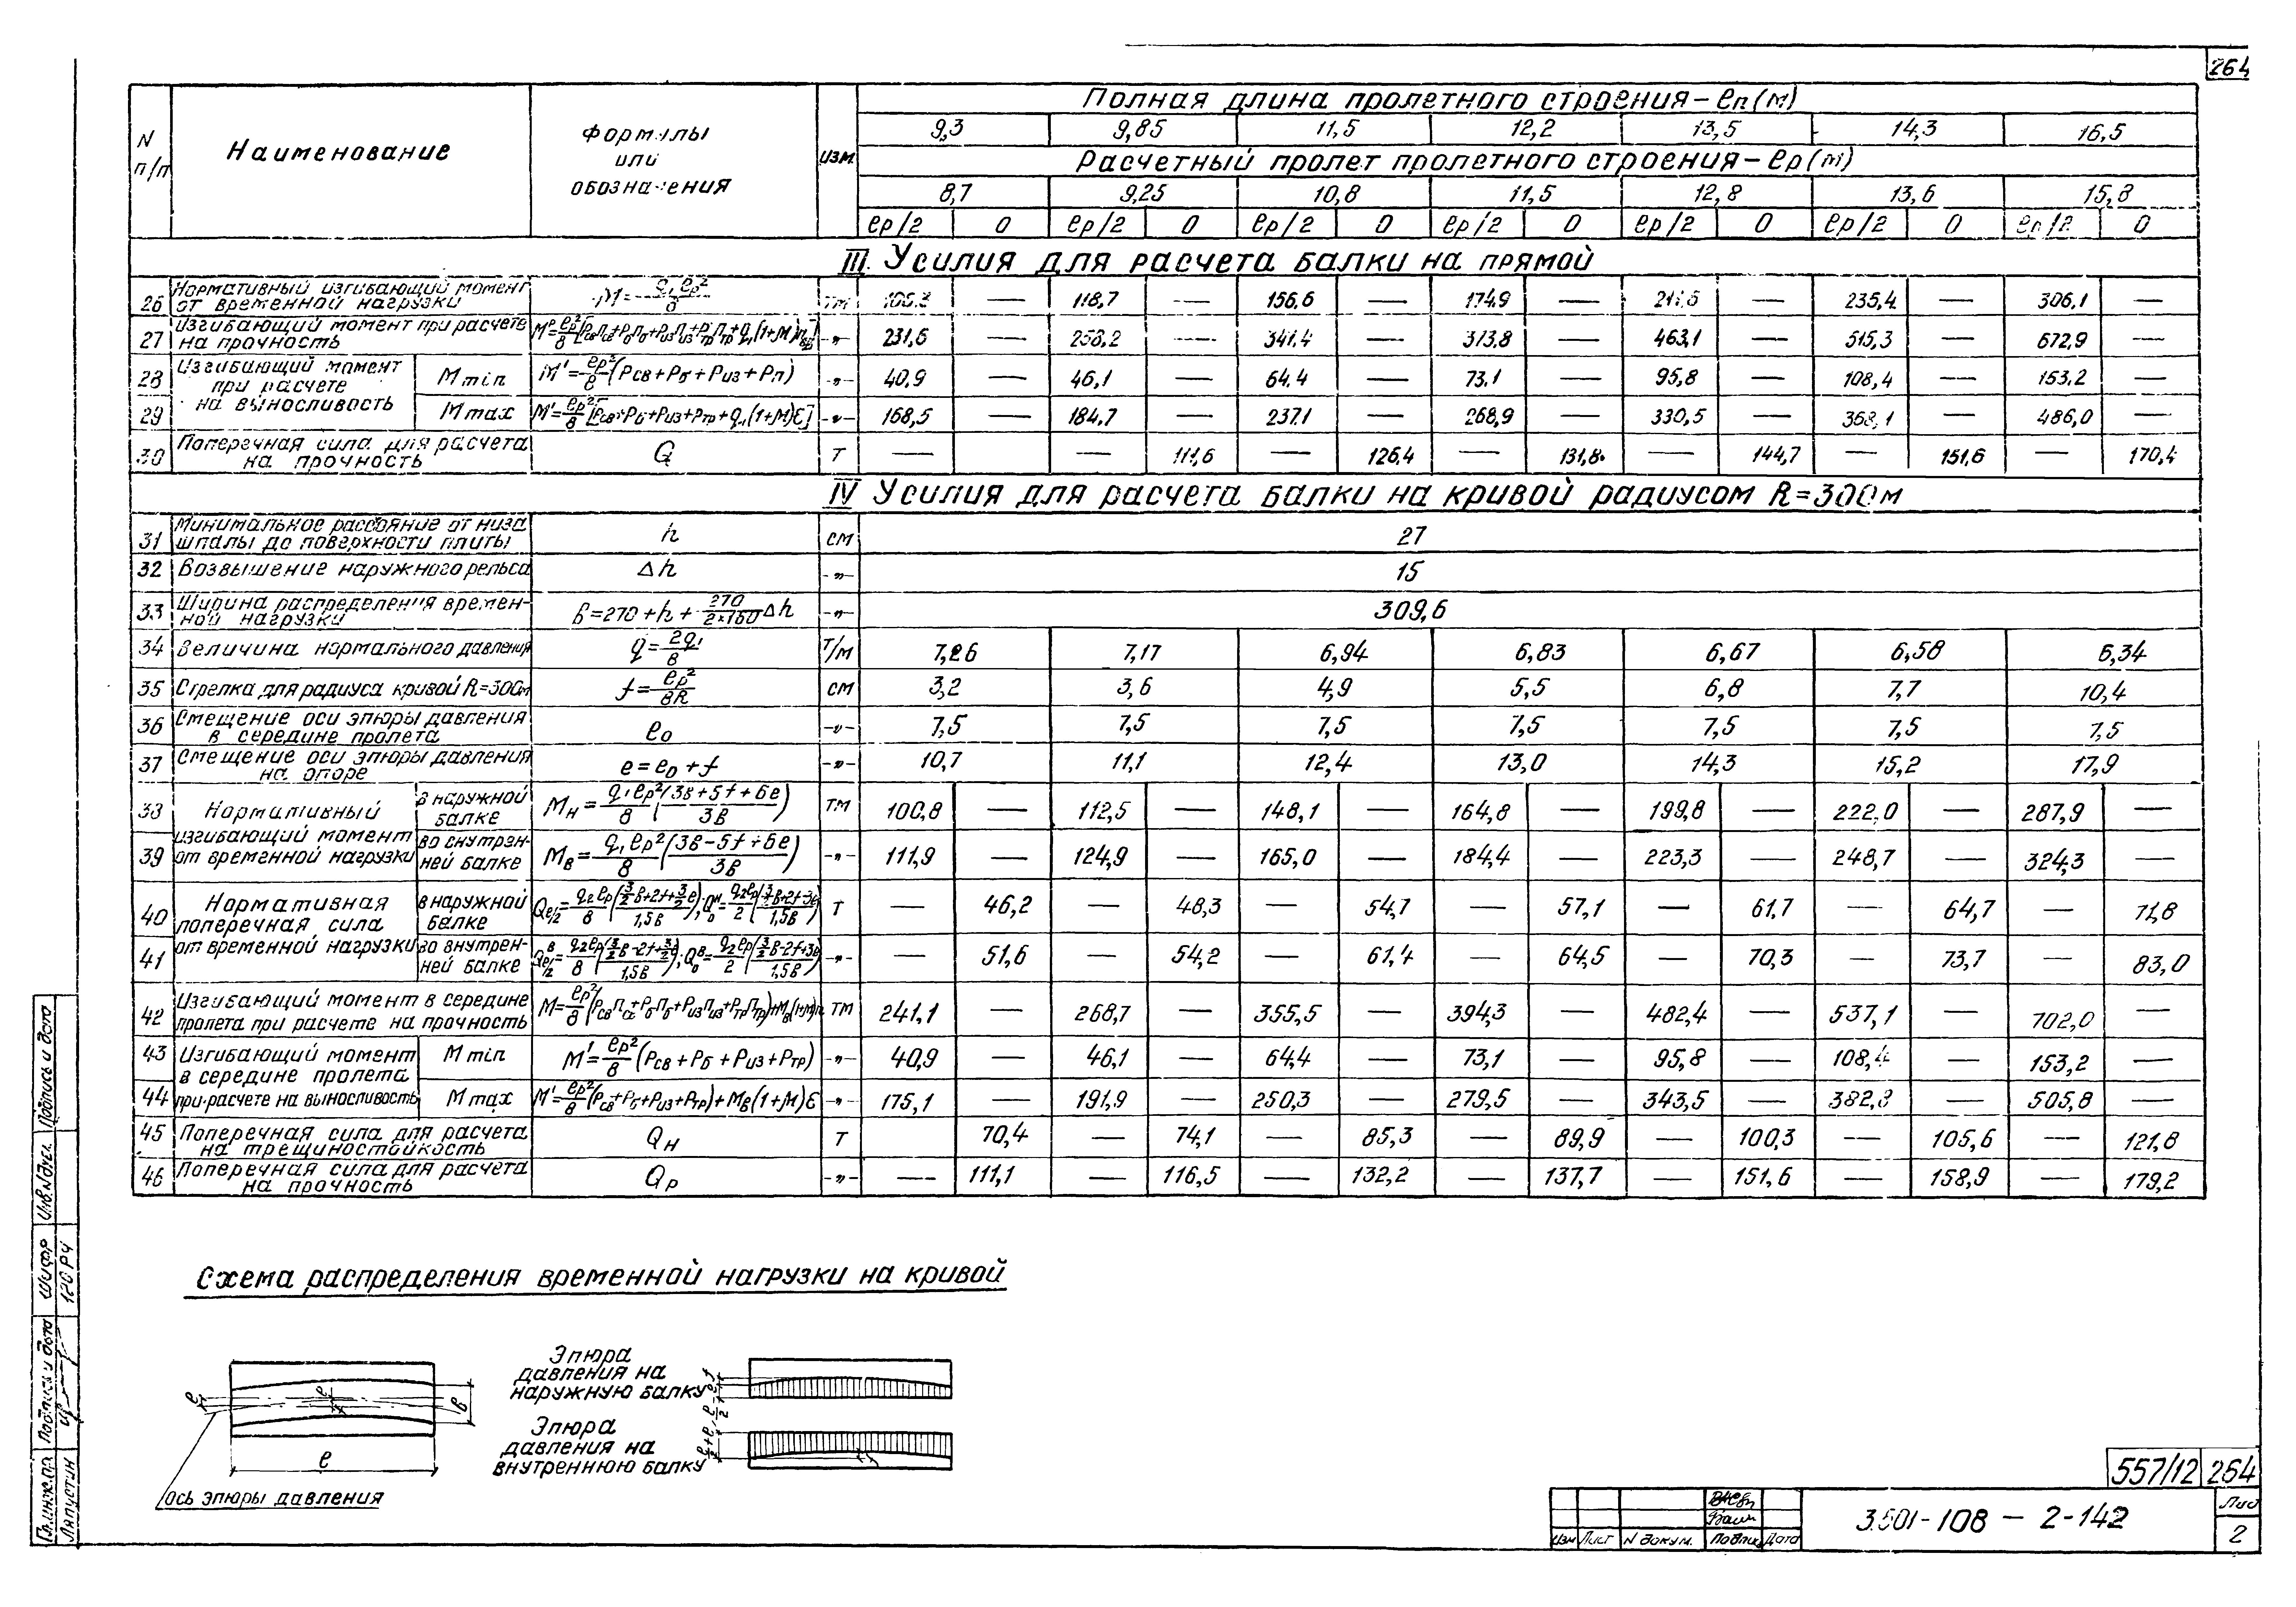 264
N п/п Наименование Формулы или обозначения изм. Полная длина пролетного строения – ℓп (м)
9,3 9,85 11,5 12,2 13,5 14,3 16,5
Расчетный пролет пролетного строения – ℓр (м)
8,7 9,25 10,8 11,5 12,8 13,6 15,8
ℓр/2 0 ℓр/2 0 ℓр/2 0 ℓр/2 0 ℓр/2 0 ℓр/2 0 ℓр/2 0
III. Усилия для расчета балки на прямой
26 Нормативный изгибающий момент от временной нагрузки — 118,7 — 156,6 — 174,9 — — 235,4 — 306,1 —
27 Изгибающий момент при расчете на прочность -"- 231,6 — 258,2 — 341,4 — 373,8 — 463,1 — 515,3 — 672,9 —
28 Изгибающий момент при расчете на выносливость M min M'=ℓр²/8 (Рсв+Рб+Риз+Рп) -"- 40,9 — 46,1 — 64,4 — 73,1 — 95,8 — 108,4 — 153,2 —
29 M max -"- 168,5 — 184,7 — 237,1 — 268,9 — 330,5 — 368,1 — 486,0 —
30 Поперечная сила для расчета на прочность Q Т — — 111,6 — 126,4 — 131,8 — 144,7 — 151,6 — 170,4
IV Усилия для расчета балки на кривой радиусом R=300м
31 Минимальное расстояние от низа шпалы до поверхности плиты h см 27
32 Возвышение наружного рельса Δh -"- 15
33 Ширина распределения временной нагрузки в=270+h+ 270/2×160 Δh -"- 309,6
34 Величина нормального давления q=2q₁/в Т/м 7,26 7,17 6,94 6,83 6,67 6,58 6,34
35 Стрелка для радиуса кривой R=300м f=ℓр²/8R см 3,2 3,6 4,9 5,5 6,8 7,7 10,4
36 Смещение оси эпюры давления в середине пролета e₀ -"- 7,5 7,5 7,5 7,5 7,5 7,5 7,5
37 Смещение оси эпюры давления на опоре e=e₀+f -"- 10,7 11,1 12,4 13,0 14,3 15,2 17,9
38 Нормативный изгибающий момент от временной нагрузки в наружной балке Мн=q₁ℓр²/8 (3в+5f+6e/3в) тм 100,8 — 112,5 — 148,1 — 164,8 — 199,8 — 222,0 — 287,9 —
39 во внутренней балке Мв=q₁ℓр²/8 (3в-5f+6e/3в) -"- 111,9 — 124,9 — 165,0 — 184,4 — 223,3 — 248,7 — 324,3 —
40 Нормативная поперечная сила от временной нагрузки в наружной балке Т — 46,2 — 48,3 — 54,7 — 57,1 — 61,7 — 64,7 — 71,8
41 во внутренней балке -"- — 51,6 — 54,2 — 61,4 — 64,5 — 70,3 — 73,7 — 83,0
42 Изгибающий момент в середине пролета при расчете на прочность тм 241,1 — 268,7 — 355,5 — 394,3 — 482,4 — 537,1 — 702,0 —
43 Изгибающий момент в середине пролета при расчете на выносливость M min M'=ℓр²/8 (Рсв+Рб+Риз+Ртр) -"- 40,9 — 46,1 — 64,4 — 73,1 — 95,8 — 108,4 — 153,2 —
44 M max M'=ℓр²/8 (Рсв+Рб+Риз+Ртр)+Мв(1+М)ε -"- 175,1 — 191,9 — 250,3 — 279,5 — 343,5 — 382,8 — 505,8 —
45 Поперечная сила для расчета на трещиностойкость Qн Т 70,4 — 74,1 — 85,3 — 89,9 — 100,3 — 105,6 — 121,8
46 Поперечная сила для расчета на прочность Qр -"- — 111,1 — 116,5 — 132,2 — 137,7 — 151,6 — 158,9 — 179,2
Схема распределения временной нагрузки на кривой
Эпюра
давления на
наружную балку
Эпюра
давления на
внутреннюю балку
в
ℓ
ось эпюры давления
557/12 264
3.501-108 – 2-142
Лис
2
Изм Лист N докум. Подпис Дата
Инв.N Подпись и дата
Шифр 120 РЧ
Подпись и дата
Ляпустин